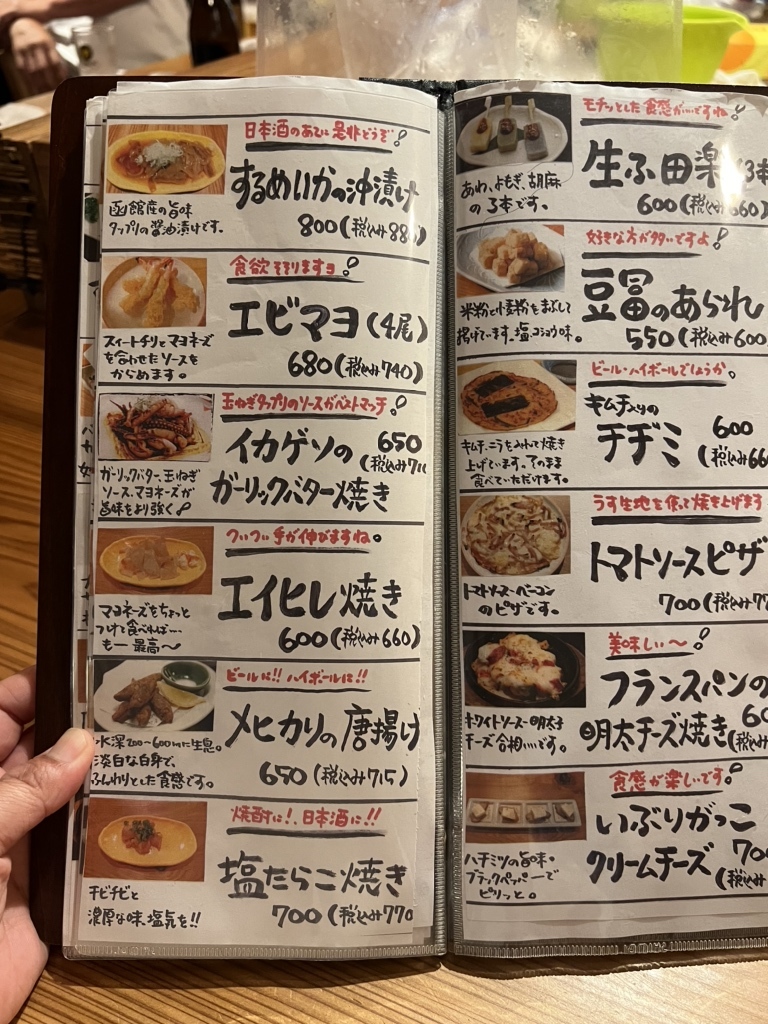 日本酒のあてに是非どうぞ!
するめいかの沖漬け
函館産の旨味
タップリの醤油漬けです。
800(税込み88
食欲そそりますヨ!
エビマヨ(4尾)
スイートチリとマヨネーズ
を合わせたソースを
からめます。
680(税込み740)
玉ねぎタップリのソースがベストマッチ!
イカゲソの
650
(税込み71
ガーリックバター焼き
ガーリックバター、玉ねぎ
ソース、マヨネーズが
旨味をより強く!
ついつい手が伸びますね。
エイヒレ焼き
マヨネーズをちょっと
つけて食べれば……
もー最高〜
600(税込み660)
ビールに!!ハイボールに!!
メヒカリの唐揚げ
水深200〜600mに生息。
淡白な白身で、
ふんわりとした食感です。
650(税込み715)
焼酎に!、日本酒に!!
塩たらこ焼き
チビチビと
濃厚な味、塩気を!!
700(税込み770
モチッとした食感がいいですね!
生ふ田楽(3本
あわ、よもぎ、胡麻
の3本です。
600(税込み660)
好きな方が多いですよ!
豆冨のあられ
米粉と小麦粉をまぶして
揚げています。塩、コショウ味。
550(税込み600
ビール・ハイボールでしょうか。
キムチ入りの
チヂミ
600
(税込み66
キムチ、ニラを入れて焼き
上げています。そのまま
食べていただけます。
うす生地を使って焼き上げます
トマトソースピザ
トマトソース・ベーコン
のピザです。
700(税込み77
美味しい〜!
フランスパンの
明太チーズ焼き
60
(税込み
ホワイトソース・明太子
チーズ合相いいです。
食感が楽しいです!
いぶりがっこ
クリームチーズ
700
(税込み
ハチミツの旨味。
ブラックペッパーで
ピリッと。